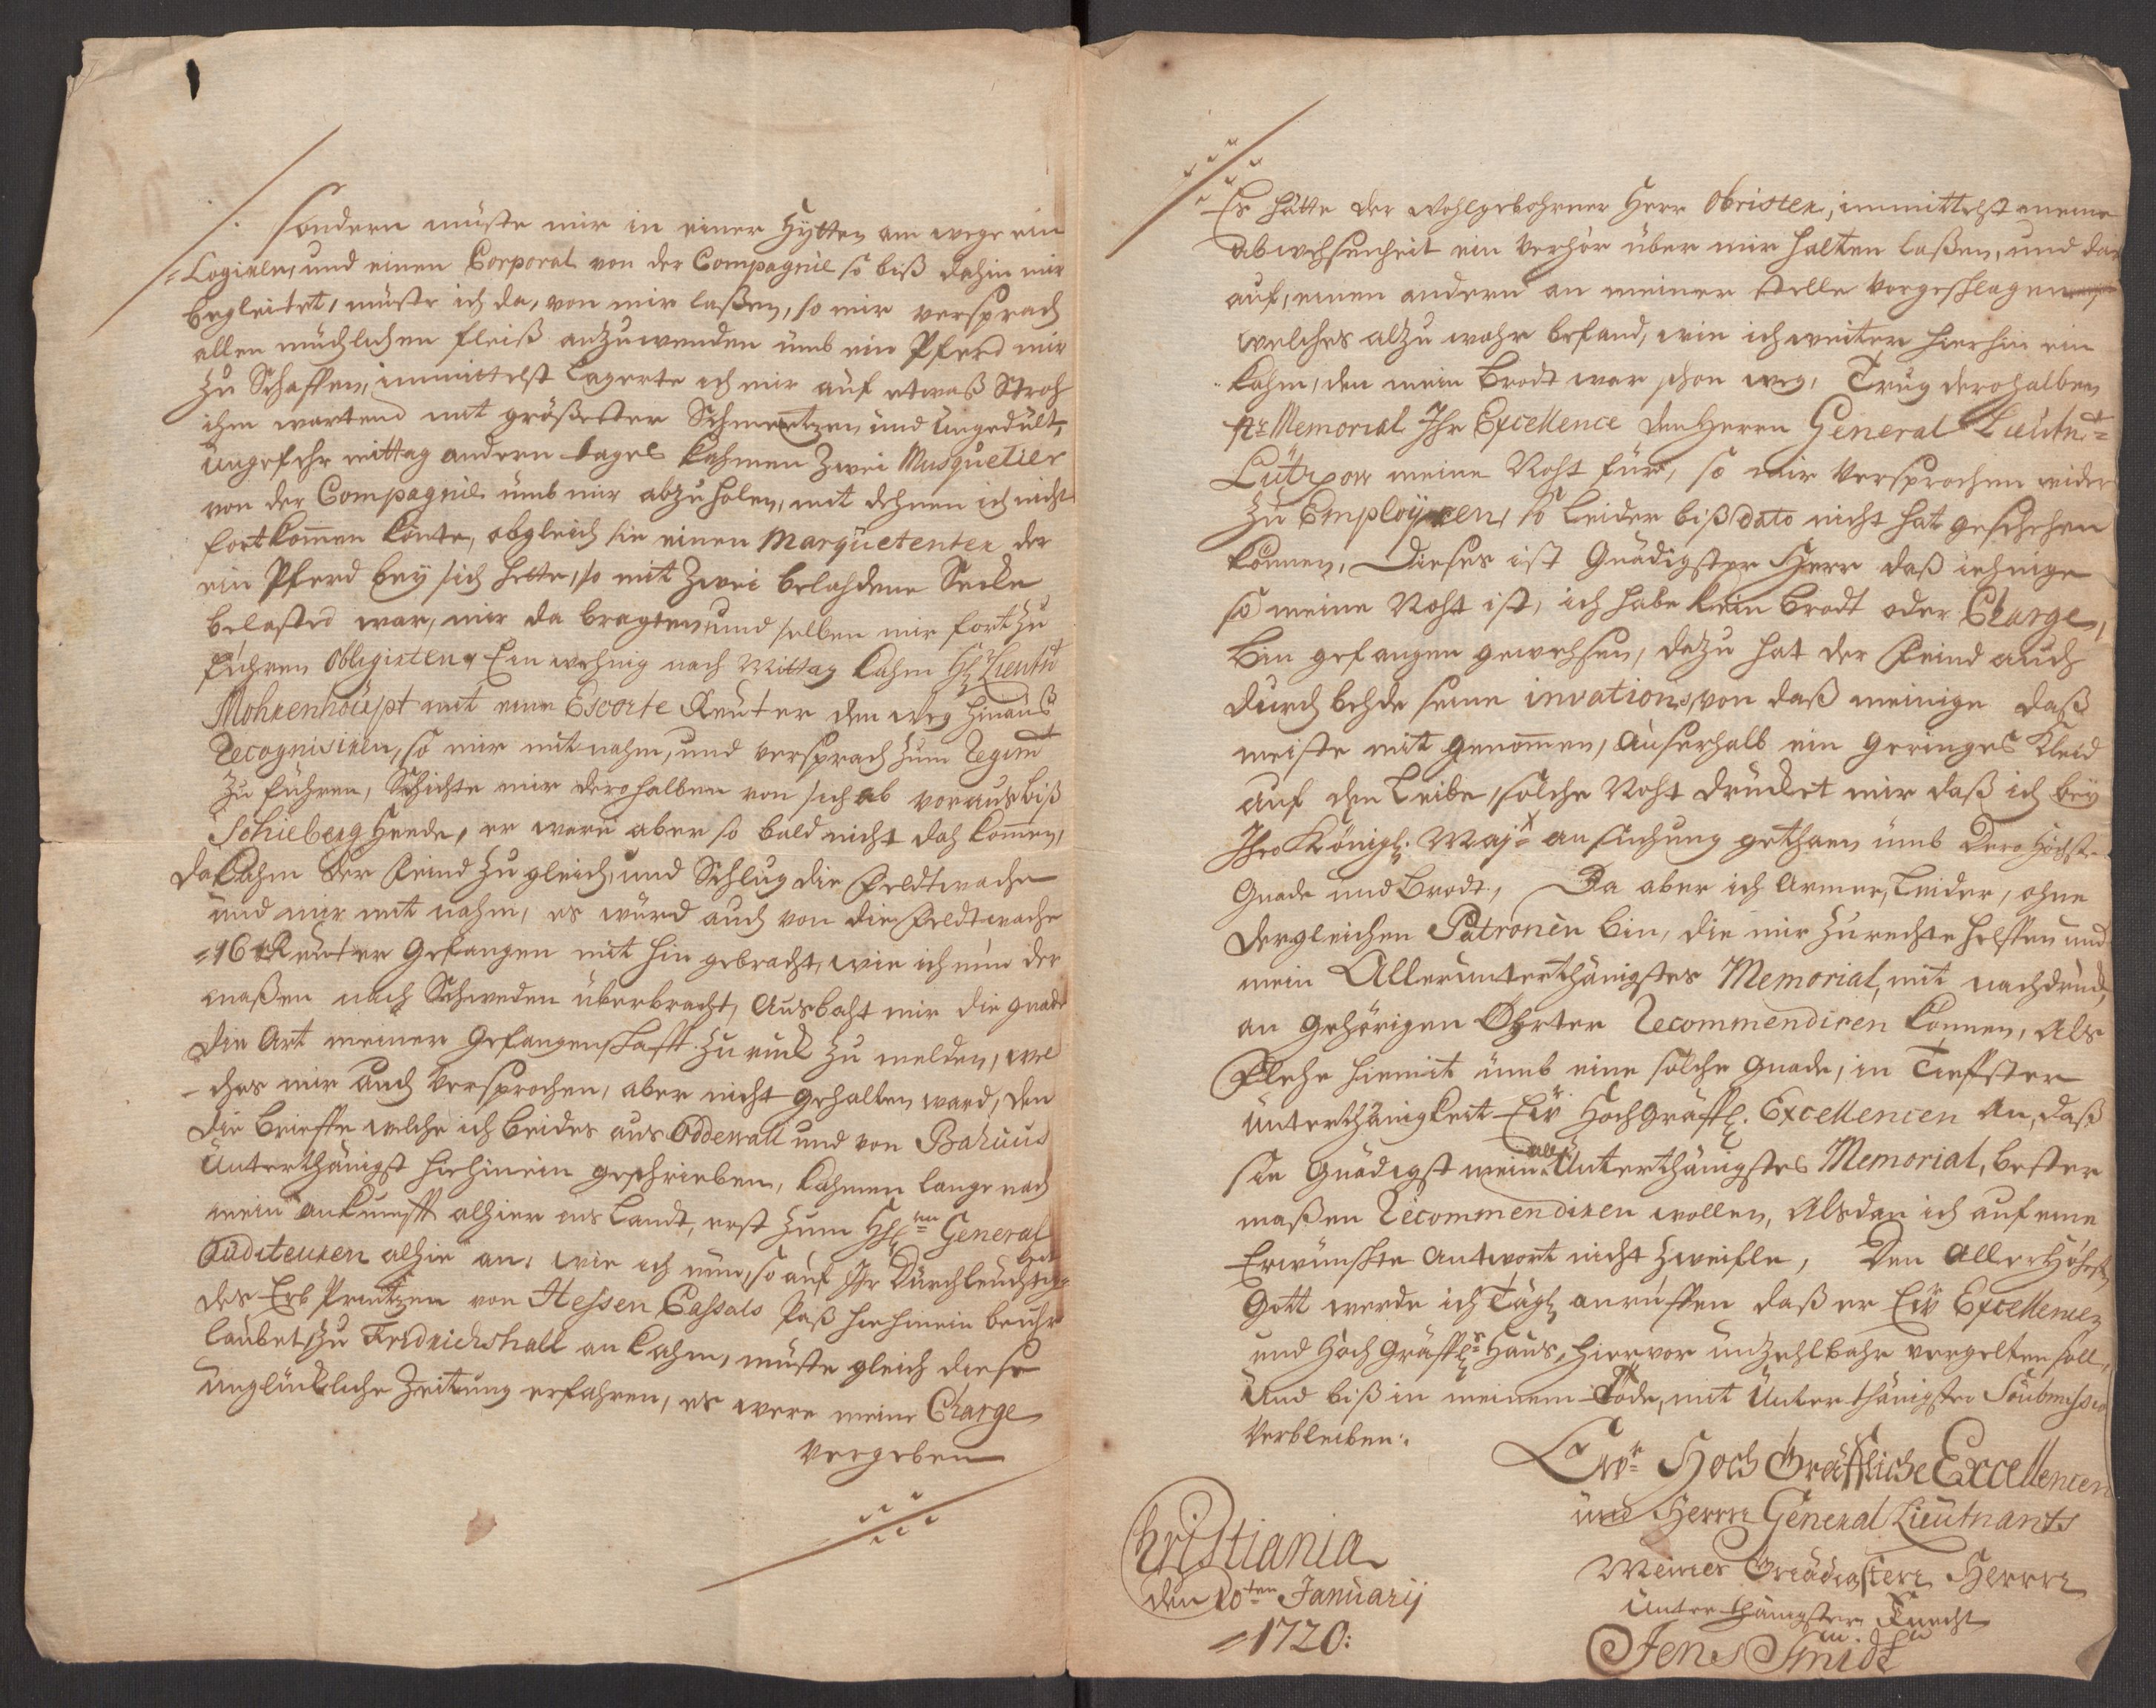 Sondern müste mir in einer Hÿtten am wege ein
=Logiren, und einen Corporal von der Compagnie so biß dahin mir
begleitet, müste ich da, von mir laßen, so mir versprach
allen müchlichen fleiß anzuwenden ümb ein Pferd mir
zu Schaffen, immittelst Lagerte ich mir auf etwaß Stroh
ihm wartend mit größester Schmertzen und Ungedült,
ungefehr mittag andern tages kahmen Zwei Musquetier
von der Compagnie ümb mir abzuholen, mit dehnen ich nicht
fortkom̄en könte, obgleich sie einen Marquetenter der
ein Pferd beÿ sich hette, so mit Zwei belahdene Secke
belasted war, mir da bragten und selben mir fort zu
führen obligirten. Ein wehnig nach Mittag kahm Hr Lieutn
Mohrenhöupt mit eine Escorte Reuter den weg hinauß
Recognisiren, so mir mit nahm, und versprach zum Regimt
zu führen, Schichte mir derohalben von sich ab vorauß biß
Schieberg Heede, erware aber so bald nicht dah kom̄en,
da kahm der feind zu gleich, und Schlug die Feldtwache
und mir mit nahm, es würd auch von die Feldtwache
=16 Reuter Gefangen mit hin gebracht, wie ich nun der
maßen nach Schweden überbracht, Ausbaht mir die gnade
die Art meiner Gefangenschafft zu rück zu melden, wel
-ches mir auch versprochen, aber nicht gehalten ward, den
die brieffe welche ich beides aus Oddewall und von Bahuus
Unterthänigst hiehinein geschrieben, kahmen lange nach
mein ankunfft alhier ins Landt, erst zum Hhrnn General
Auditeuren alhie an, wie ich nun, so auf Ihr Dürchleuchtigheit
des Erb Printzen von Hessen Cassals Paß hiehinein beuhr
laubet, zu Fredrichshall an kahm, müste gleich diese
unglückliche Zeitung erfahren, es were meine Charge
vergeben
Es hätte der Wohlgebohrner Herr Obrister, immittelst meine
abwehsenheit ein verhör über mir halten laßen, und dar
auf, einen andern an meiner Stelle vorgeschlagen
welches alzu wahr befand, wie ich weiter hierhin ein
kahm, den mein Brodt war schon weg, Trug derohalben
pr Memorial Ihr Excellence den Herrn General Lieutnt=
Lützow meine Noht für, so mir Versprochen wider
zu Employren, so Leider biß dato nicht hat geschehen
können, Dieses ist Gnädigster Herr daß iehnige
so meine Noht ist, ich habe kein Brodt oder Charge,
bin gefangen gewehsen, dazu hat der Feind auch
durch behde seine invations, von daß meinige daß
meiste mit genom̄en, Auserhalb ein geringes Kleid
auf den Leibe, solche Noht drücket mir daß ich beÿ
Ihro Königl. Majt ansuchung gethaen ümb Dero Höchste
Gnade und Brodt, Da aber ich Armer, Leider, ohne
dergleichen Patronen bin, die mir zu rechte helffen und
mein Allerunterthänigstes Memorial, mit nachdruck,
an gehörigen Öhrter Recommendiren können, Als
Flehe hiemit ümb eine solche Gnade, in Tieffster
unterthänigkeit Eür HochGräffl. Excellencen An, daß
sie Gnädigst mein aller Unterthänigstes Memorial, bester
maßen Recommendiren wollen, Alsdan ich auf eine
Erwünschte Antwort nicht zweifle, Den Aller Höhesten
Gott werde ich Tägl anruffen daß er Eür Excellencen
und Hoch Gräffl Haus, hiervor unzehlbahr vergelten soll,
Und biß in meinem Tode, mit Unterthänigster Soubmission
Verbleiben.
Ewr Hoch Gräffliche Excellencen
und Herrn General Lieutnants
Meines Gnädigsten Herrn
Unterthänigster Knecht
Jens Smidt
Christiania
den 20ten Januarij
=1720: